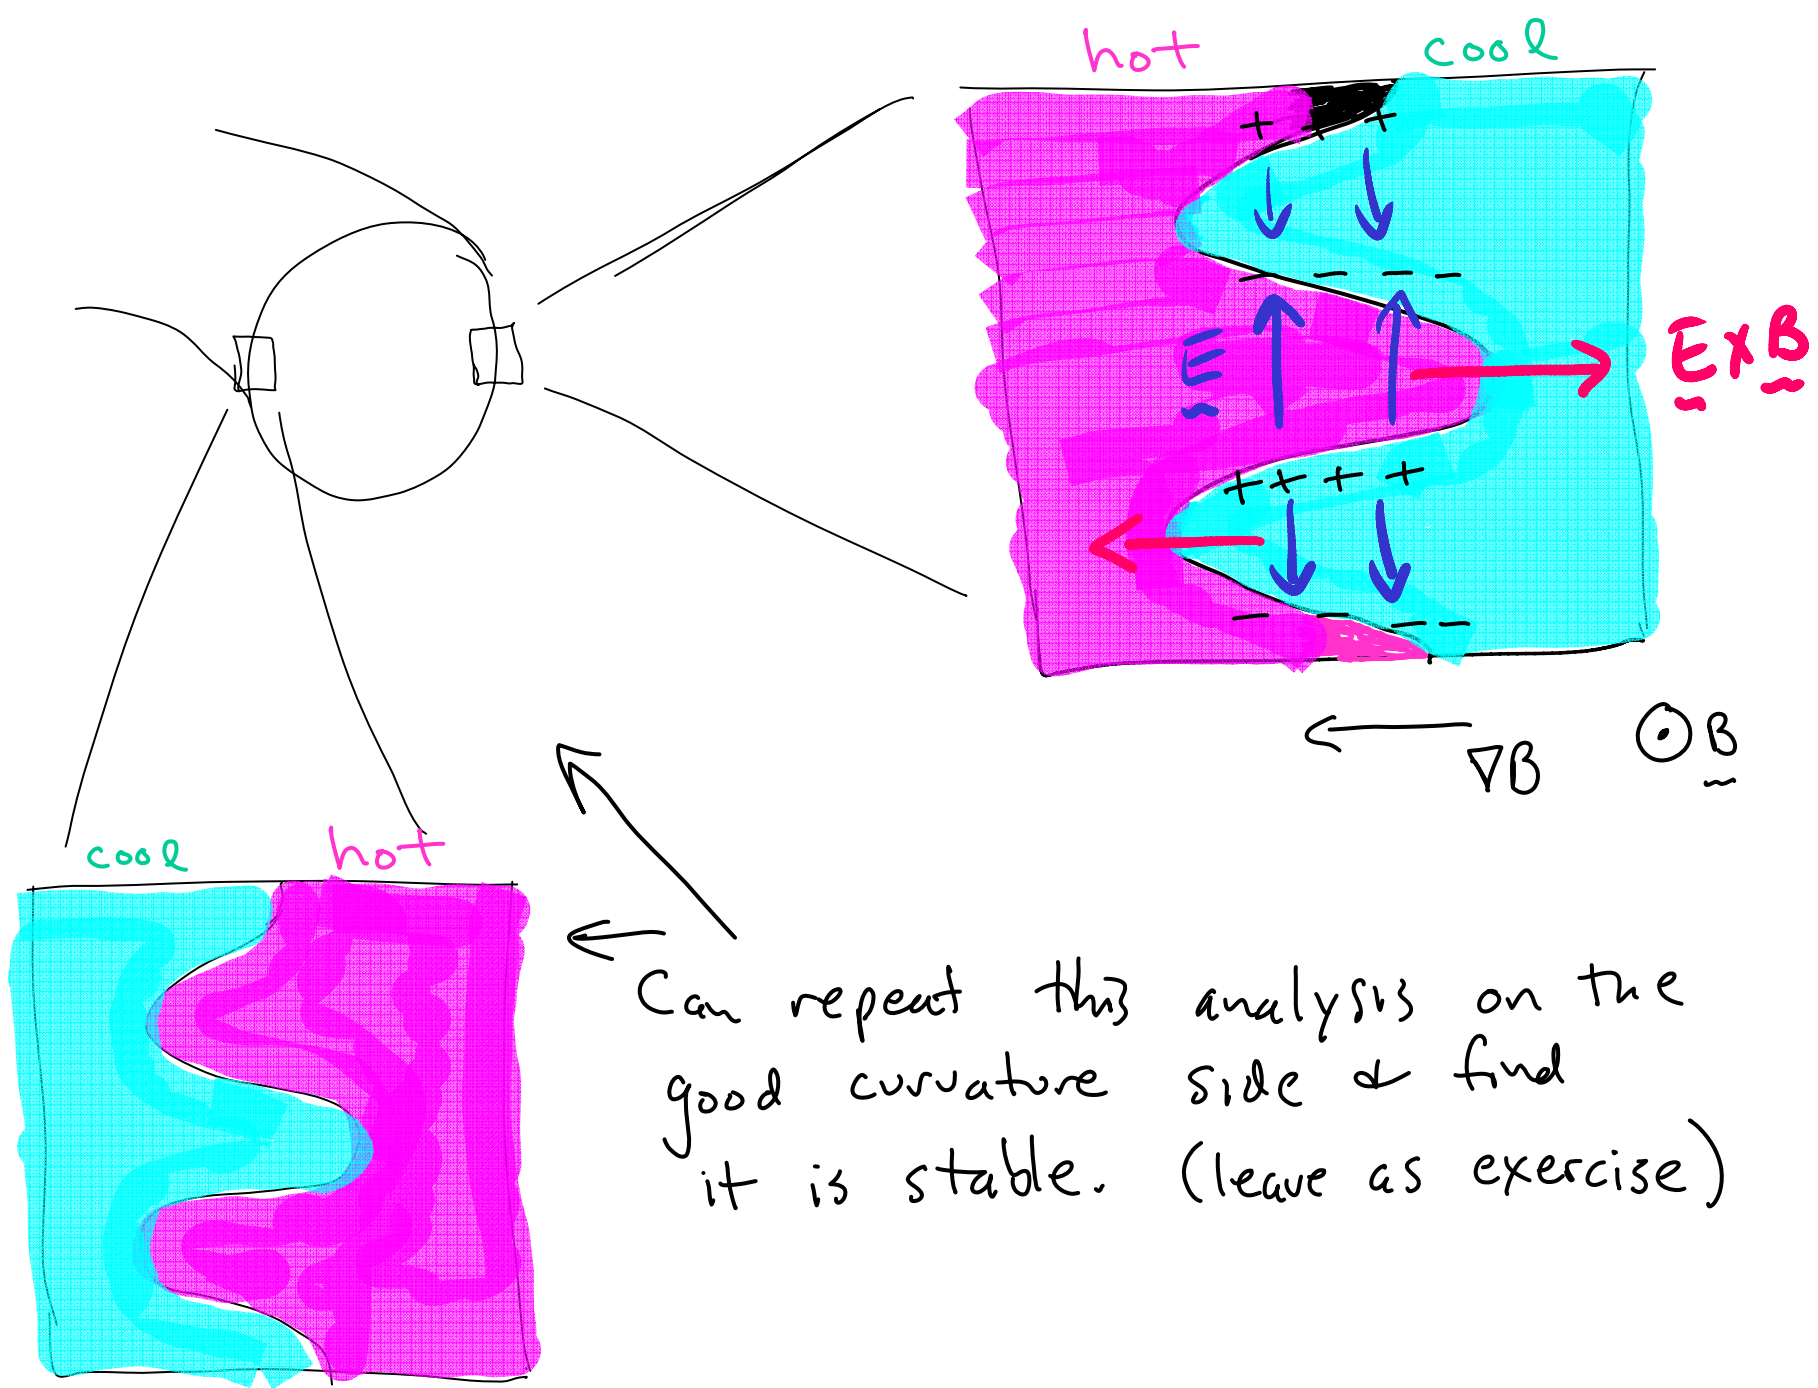 hot cool
+ + +
− − − −
E
E×B
+ + + +
− − − −
∇B ⊙ B
cool hot
Can repeat this analysis on the
good curvature side & find
it is stable. (leave as exercise)